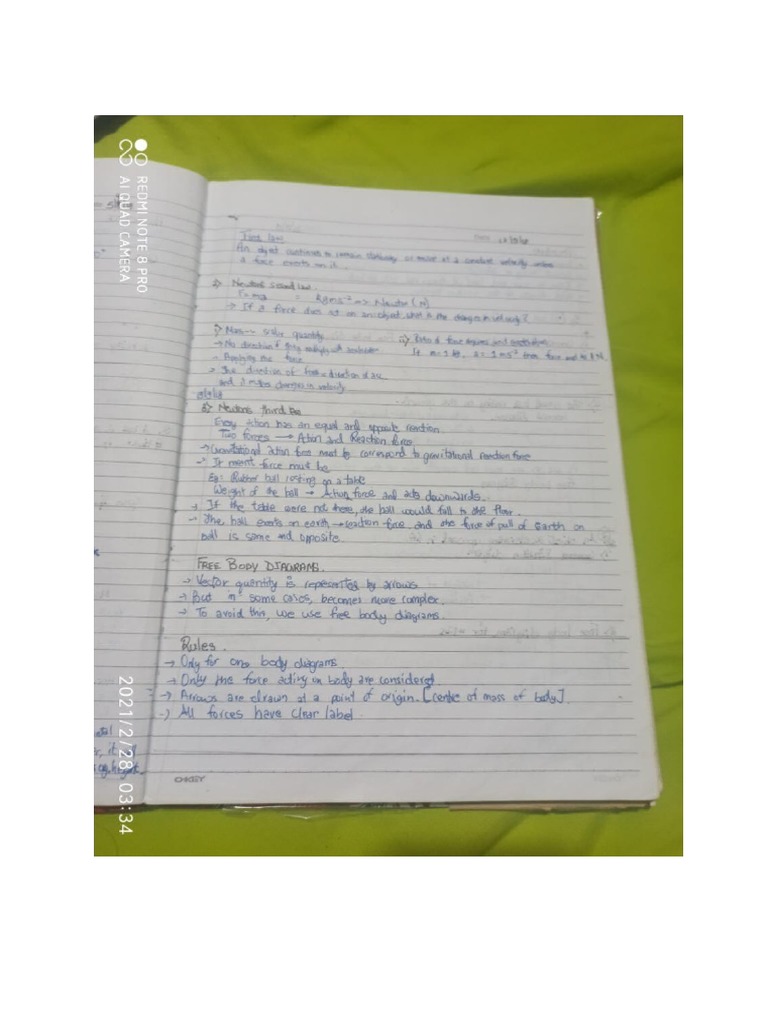 REDMI NOTE 8 PRO
AI QUAD CAMERA
2021/2/28 03:34
First law
An object continues to remain stationary or move at a constant velocity unless
a force exerts on it.
2) Newtons second law.
F=ma = kgms⁻² => Newton (N)
→ If a force does act on an object, what is the changes in velocity?
1) Mass → scalar quantity
→ No direction if
→ Applying the force
→ The direction of force = direction of
and it makes changes in velocity
2) Ratio of force
If m = 1 kg, a = 1 ms⁻² then force
3) Newtons third law
Every action has an equal and opposite reaction.
Two forces → Action and Reaction force
→ Gravitational action force must be correspond to gravitational reaction force
→ It means force must be
Eg: Rubber ball resting on a table
Weight of the ball → Action force and acts downwards.
→ If the table were not there, the ball would fall to the floor.
→ The ball exerts on earth → reaction force, and the force of pull of Earth on
ball is same and opposite.
FREE BODY DIAGRAMS.
→ Vector quantity is represented by arrows
→ But in some cases, becomes more complex.
→ To avoid this, we use free body diagrams.
Rules.
→ Only for one body diagrams.
→ Only the force acting on body are considered.
→ Arrows are drawn at a point of origin. [centre of mass of body].
→ All forces have clear label.